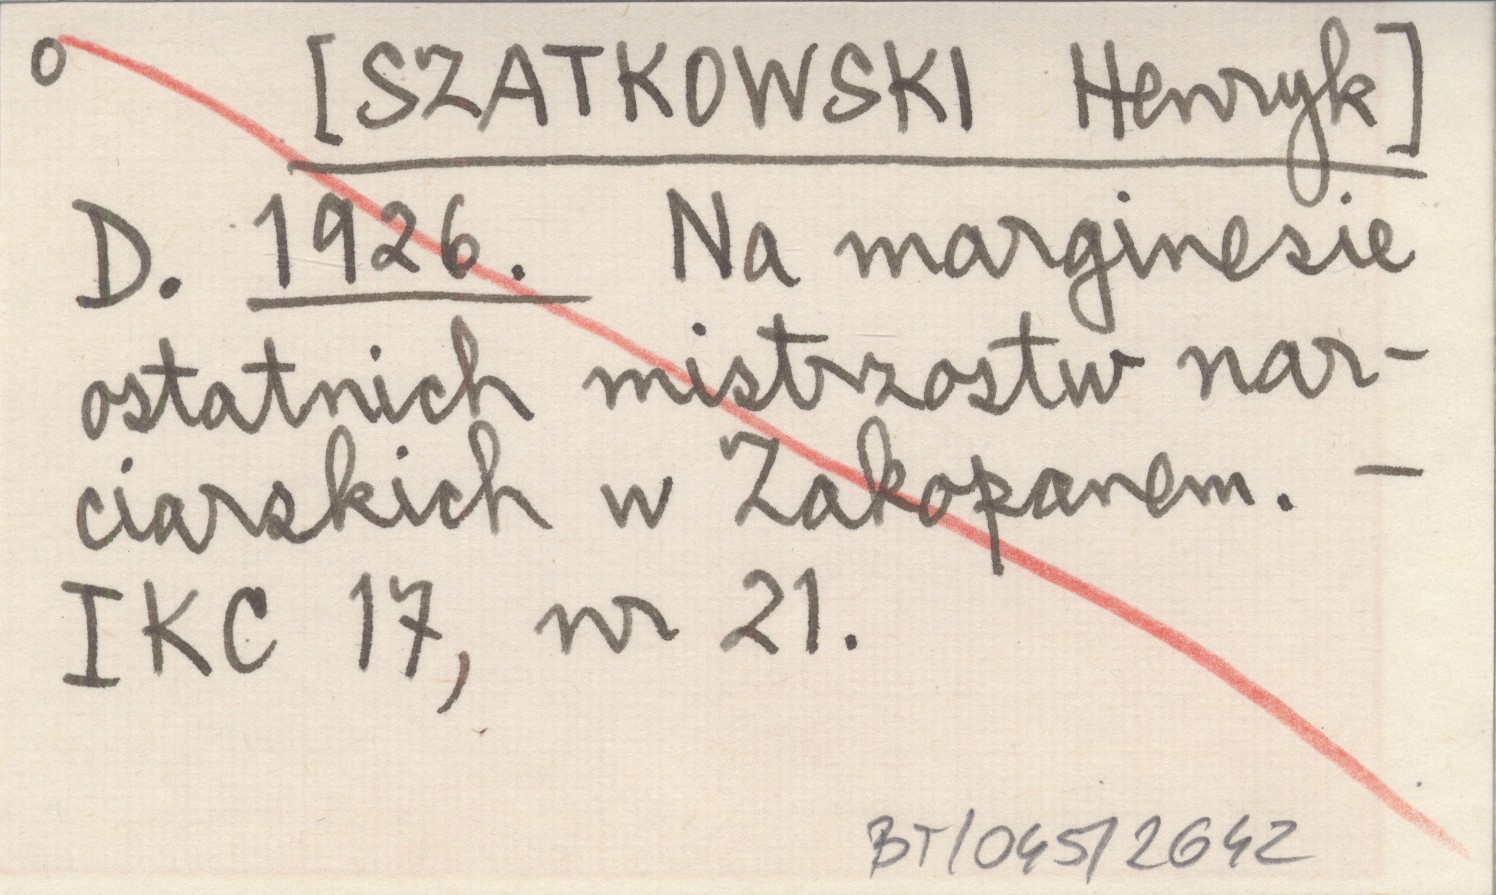 o [SZATKOWSKI Henryk]
D. 1926. Na marginesie
ostatnich mistrzostw nar-
ciarskich w Zakopanem. —
IKC 17, nr 21.
BT/045/2642